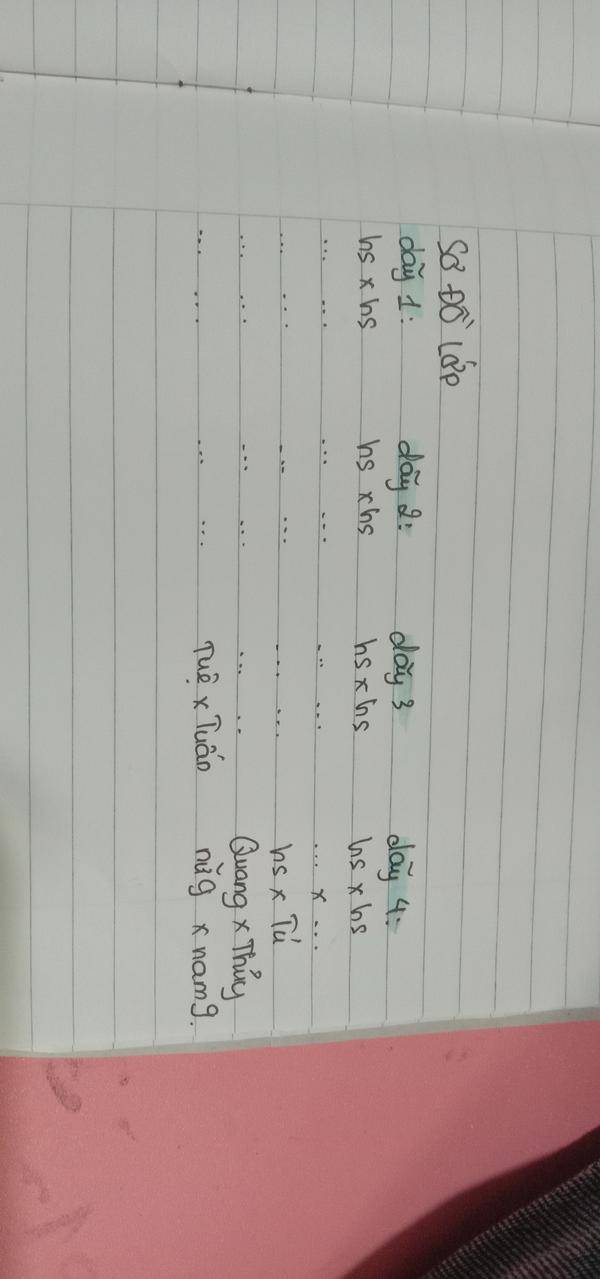 SƠ ĐỒ LỚP
dãy 1: dãy 2: dãy 3 dãy 4:
hs x hs hs x hs hs x hs hs x hs
... ... ... ... ... ... ... x ...
... ... ... ... ... ... hs x Tú
... ... ... ... ... ... Quang x Thủy
... ... ... ... Tuệ x Tuấn nữ9 x nam9.